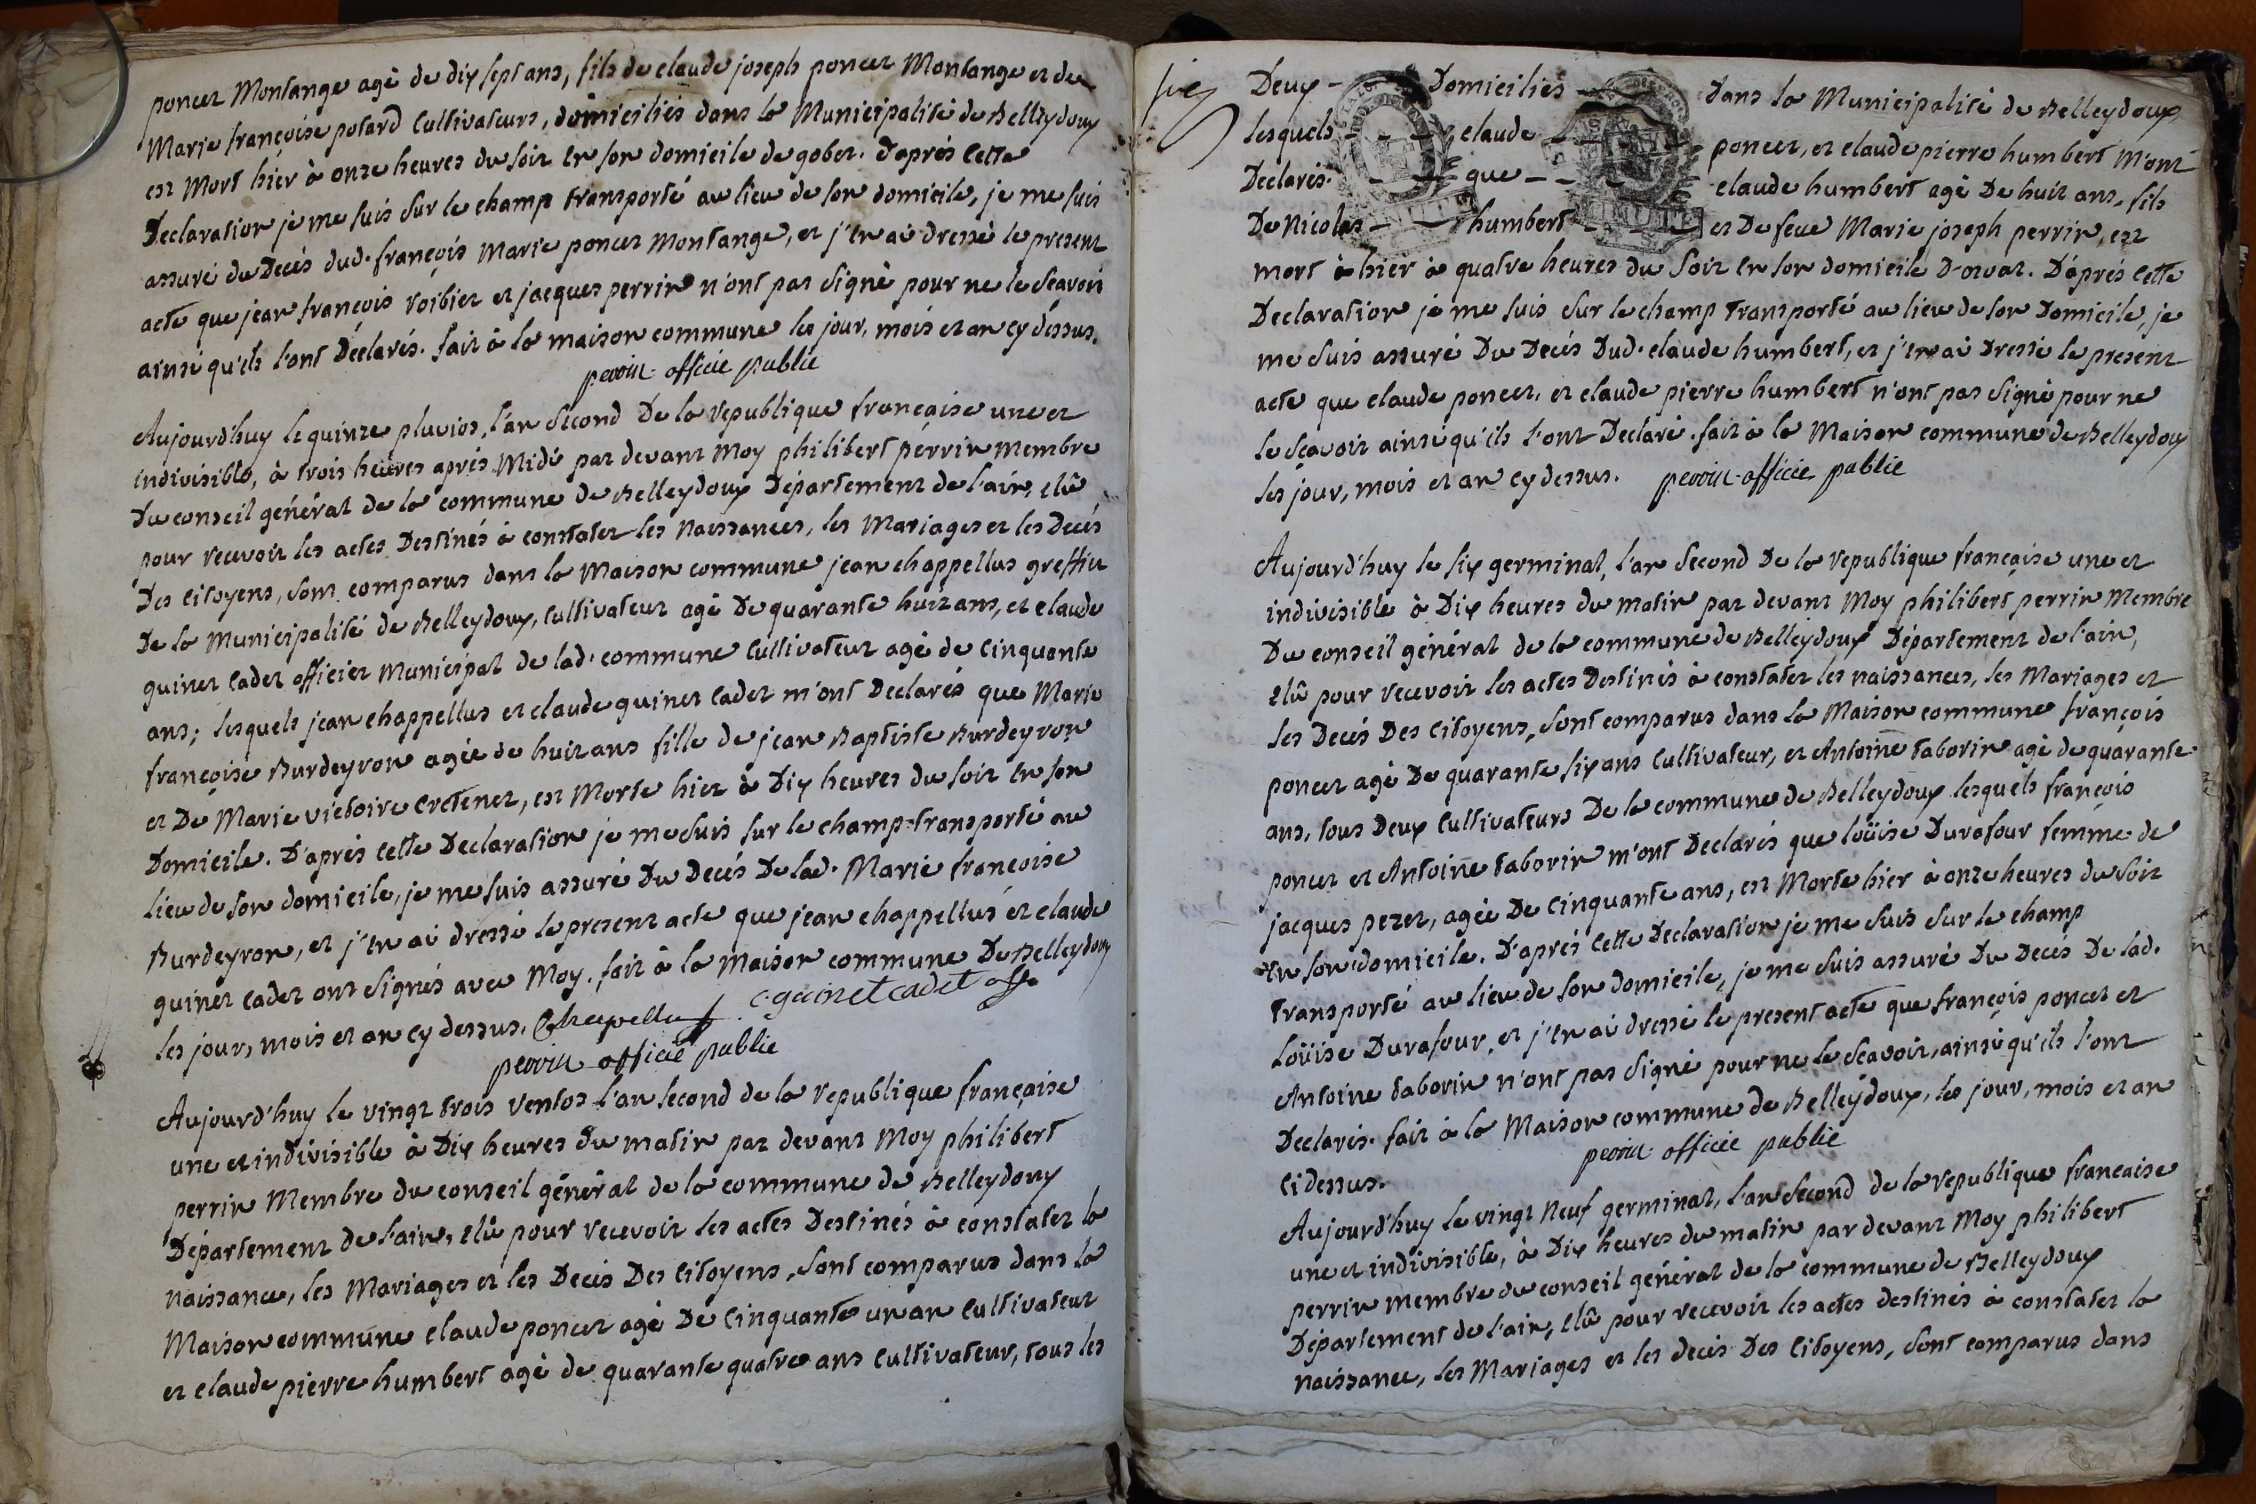 poncet Montange agé de dix sept ans, fils de claude joseph poncet Montange et de
Marie françoise potard Cultivateurs, domiciliés dans la Municipalité de Belleydoux
est Mort hier à onze heures du soir en son domicile de gobet. d'après cette
Declaration je me suis sur le champ transporté au lieu de son domicile, je me suis
assuré du Decés dud. françois Marie poncet Montange, et j'en ai dressé le present
acte que jean françois roibier et jacques perrin n'ont pas signé pour ne le sçavoir
ainsi qu'ils l'ont Déclarés. fait à la maison commune les jour, mois et an cy dessus.
perrin officié public
Aujourd'huy le quinze pluvios, l'an second De la republique française une et
indivisible, à trois heures après Midi par devant Moy philibert perrin Membre
Du conseil général de la commune de Belleydoux Département de l'ain, elû
pour recevoir les actes Destinés à constater les Naissances, les Mariages et les Decés
Des Citoyens, sont comparus dans la Maison commune jean chappellus greffier
De la Municipalité de Belleydoux, Cultivateur agé De quarante huit ans, et Claude
guinet Cadet officier Municipal de lad. commune Cultivateur agé de Cinquante
ans; lesquels jean chappellus et claude guinet Cadet m'ont Declarés que Marie
françoise Burdeyron agée de huit ans fille de jean Baptiste Burdeyron
et De Marie victoire Cretenet, est Morte hier à Dix heures du soir en son
Domicile. D'après cette Declaration je me suis sur le champ transporté au
lieu de son domicile, je me suis assuré Du Decés De lad. Marie françoise
Burdeyron, et j'en ai dressé le present acte que jean chappellus et claude
guinet Cadet ont signés avec Moy. fait à la Maison commune De Belleydoux
les jour, mois et an cy dessus. Chapellus c. guinet cadet off.
perrin officié public
Aujourd'huy le vingt trois ventos l'an second de la republique française
une et indivisible à Dix heures Du matin par devant Moy philibert
perrin Membre du conseil général de la commune de Belleydoux
Département de l'ain, elû pour recevoir les actes Destinés à constater la
naissance, les Mariages et les Decés Des Citoyens, sont comparus dans la
Maison commune claude poncet agé De Cinquante un an Cultivateur
et claude pierre humbert agé de quarante quatre ans Cultivateur, tous les
six Deux - Domiciliés - dans la Municipalité de Belleydoux
lesquels - - - claude - - - poncet, et claude pierre humbert M'ont
Declarés. - - - que - - - claude humbert agé De huit ans, fils
De Nicolas - - humbert - et De feue Marie joseph perrin, est
mort à hier à quatre heures du Soir en son domicile D'orvat. D'après cette
Declaration je me suis sur le champ transporté au lieu de son Domicile, je
me suis assuré Du Decés Dud. claude humbert, et j'en ai Dressé le present
acte que claude poncet, et claude pierre humbert n'ont pas signé pour ne
le sçavoir ainsi qu'ils l'ont Declaré. fait à la Maison commune de Belleydoux
les jour, mois et an cy dessus. perrin officié public
Aujourd'huy le six germinal, l'an second De la republique française une et
indivisible à Dix heures du matin par devant Moy philibert perrin Membre
Du conseil général de la commune de Belleydoux Département de l'ain,
elû pour recevoir les actes Destinés à constater les naissances, les Mariages et
les Decés Des Citoyens, sont comparus dans la Maison commune françois
poncet agé De quarante six ans Cultivateur, et Antoine taborin agé de quarante
ans, tous Deux Cultivateurs De la commune de Belleydoux lesquels françois
poncet et Antoine taborin m'ont Declarés que loüise Durafour femme de
jacques pezet, agée De Cinquante ans, est Morte hier à onze heures du soir
en son domicile. D'après cette Declaration je me suis sur le champ
transporté au lieu de son domicile, je me suis assuré Du Decés De lad.
Loüise Durafour, et j'en ai dressé le present acte que françois poncet et
Antoine taborin n'ont pas signé pour ne le sçavoir, ainsi qu'ils l'ont
Declarés. fait à la Maison commune de Belleydoux, les jour, mois et an
Cidessus. perrin officié public
Aujourd'huy le vingt Neuf germinal, l'an second de la republique francaise
une et indivisible, à Dix heures du matin par devant Moy philibert
perrin membre du conseil général de la commune de Belleydoux
Département de l'ain, elû pour recevoir les actes destinés à constater la
naissance, les Mariages et les decés Des Citoyens, sont comparus dans